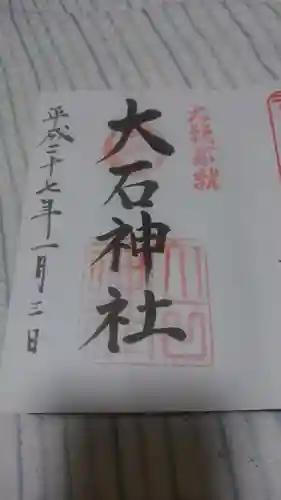 大願成就
大石神社
平成二十七年一月三日